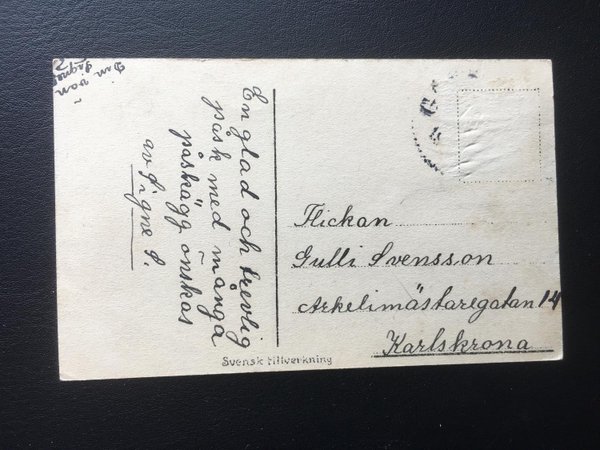 En glad och trevlig
påsk med många
påskägg önskas
av Signe S.
Din vän
Signe
Flickan
Gulli Svensson
Arkelimästaregatan 14
Karlskrona
Svensk tillverkning